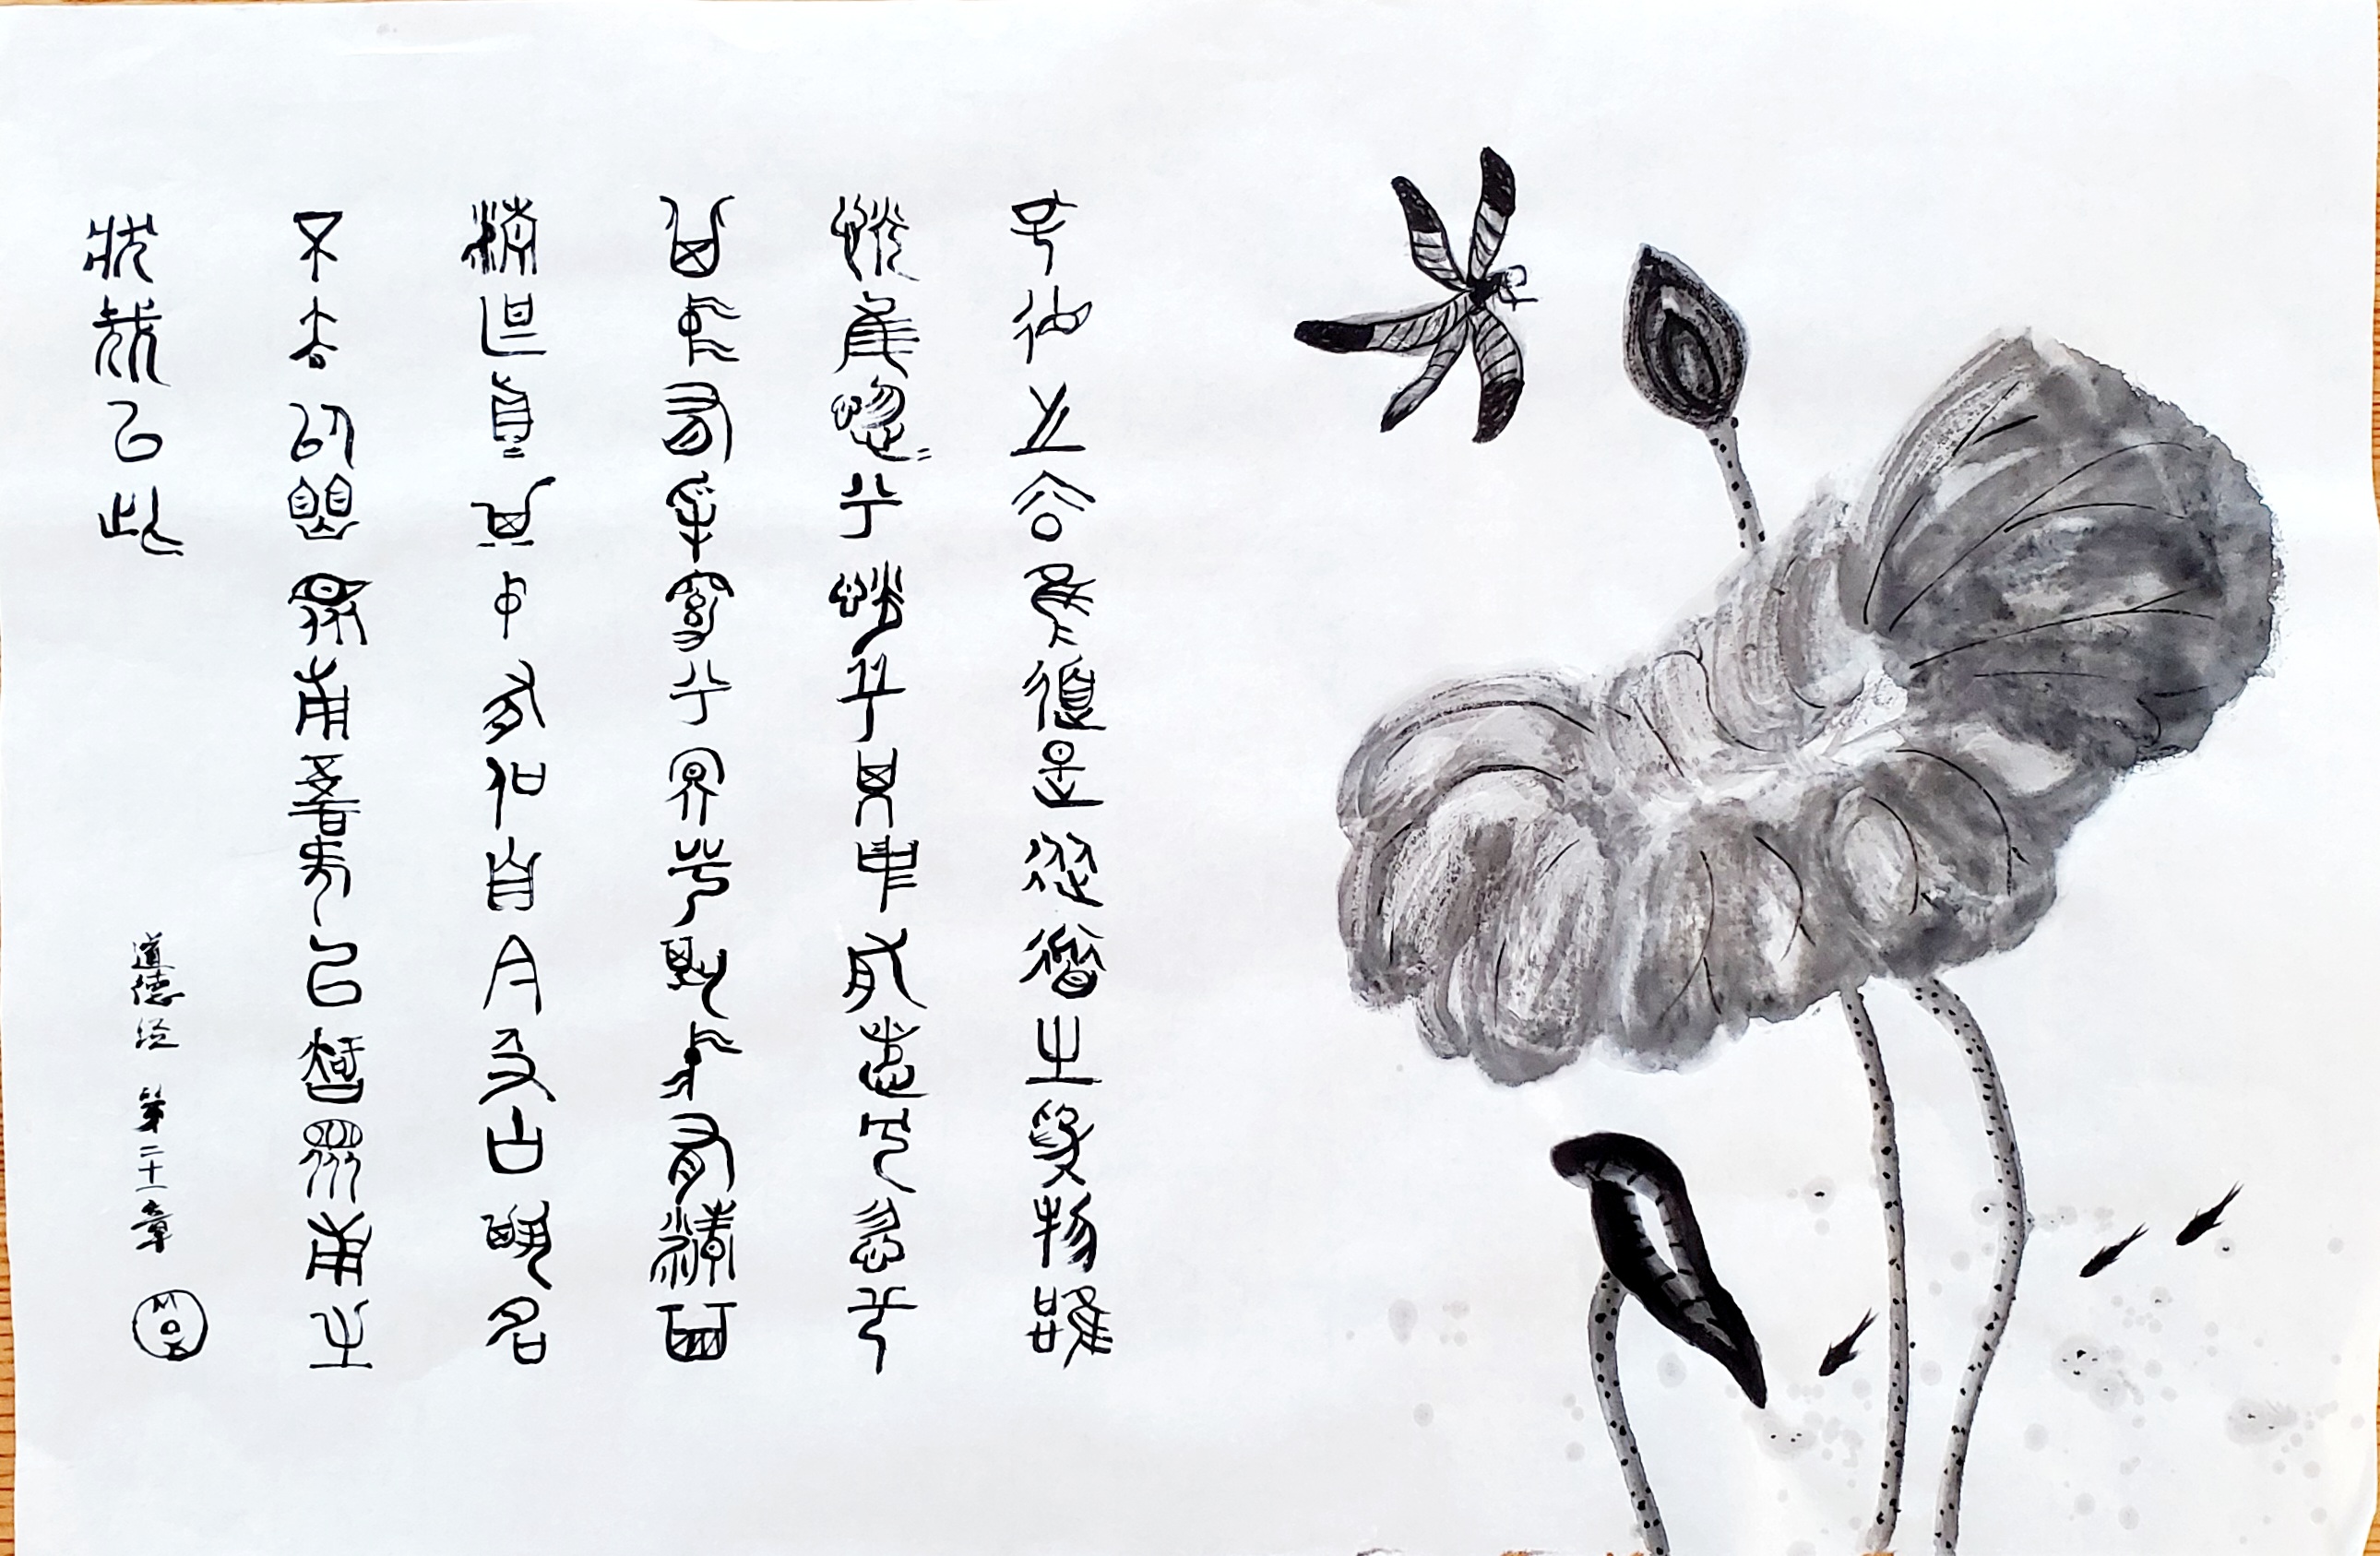 孔德之容惟道是從道之為物惟
恍惟惚〻兮恍兮其中有兮惚兮
其中有物窈兮冥兮其中有精其
精甚真其中有信自今及古其名
不去以閱眾甫吾何以知眾甫之
狀哉以此
道德经 第二十一章